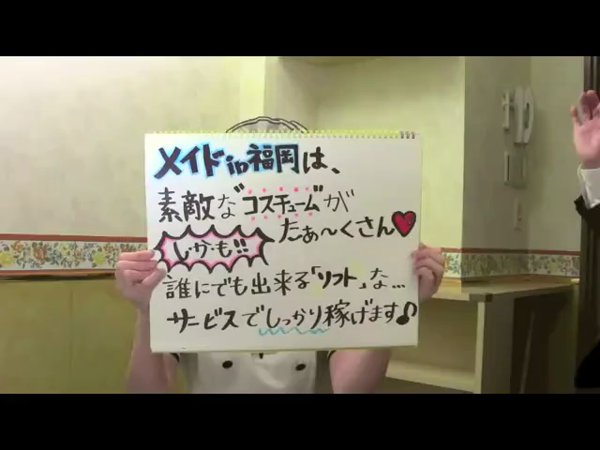 メイドin福岡は、
素敵な"コスチューム"が
たぁ〜くさん♥
しかも!!
誰にでも出来る「ソフト」な…
サービスでしっかり稼げます♪